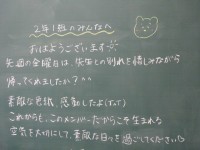 2年1組のみんなへ
おはようございます
先週の金曜日は、先生との別れを惜しみながら
帰ってくれましたか？^^
素敵な色紙、感動したよ(T_T)
これからも、このメンバーだからこそ生まれる
空気を大切にして、素敵な日々を過ごしてくださいね